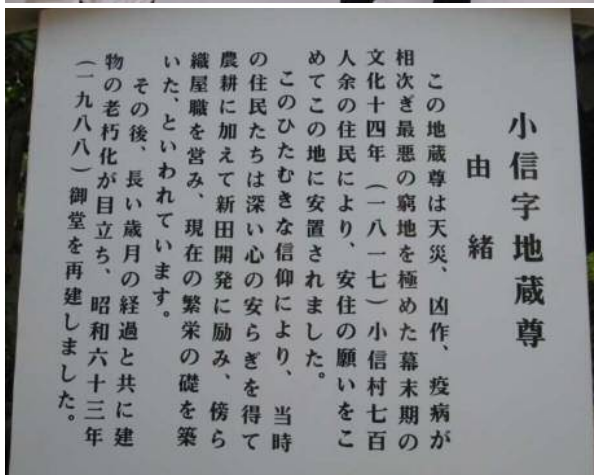 小信字地蔵尊
由緒
この地蔵尊は天災、凶作、疫病が
相次ぎ最悪の窮地を極めた幕末期の
文化十四年（一八一七）小信村七百
人余の住民により、安住の願いをこ
めてこの地に安置されました。
このひたむきな信仰により、当時
の住民たちは深い心の安らぎを得て
農耕に加えて新田開発に励み、傍ら
織屋職を営み、現在の繁栄の礎を築
いた、といわれています。
その後、長い歳月の経過と共に建
物の老朽化が目立ち、昭和六十三年
（一九八八）御堂を再建しました。